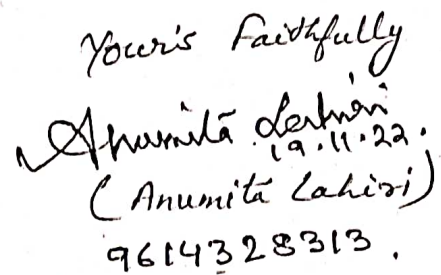 Your's Faithfully
Anumita Lahiri
19.11.22.
(Anumita Lahiri)
9614328313.